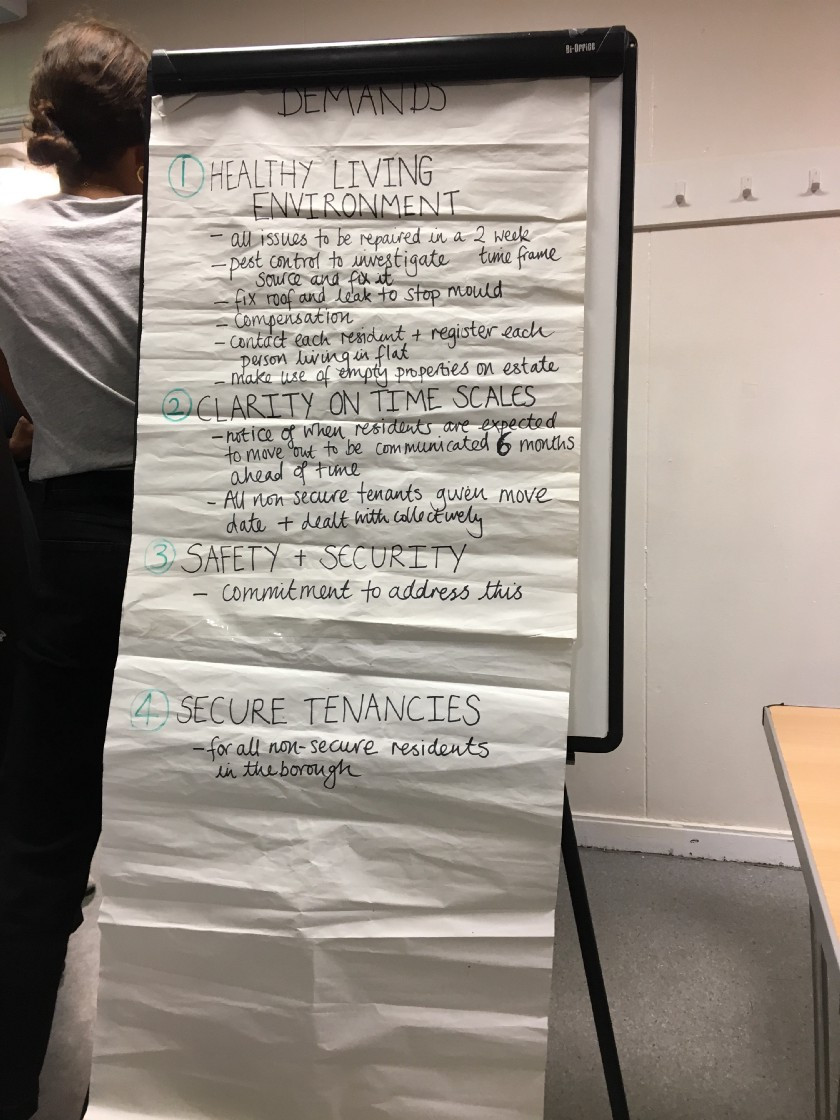 Bi-Office
DEMANDS
① HEALTHY LIVING
ENVIRONMENT
- all issues to be repaired in a 2 week
time frame
- pest control to investigate
source and fix it
- fix roof and leak to stop mould
- Compensation
- contact each resident + register each
person living in flat
- make use of empty properties on estate
② CLARITY ON TIME SCALES
- notice of when residents are expected
to move out to be communicated 6 months
ahead of time
- All non secure tenants given move
date + dealt with collectively
③ SAFETY + SECURITY
- commitment to address this
④ SECURE TENANCIES
- for all non-secure residents
in the borough